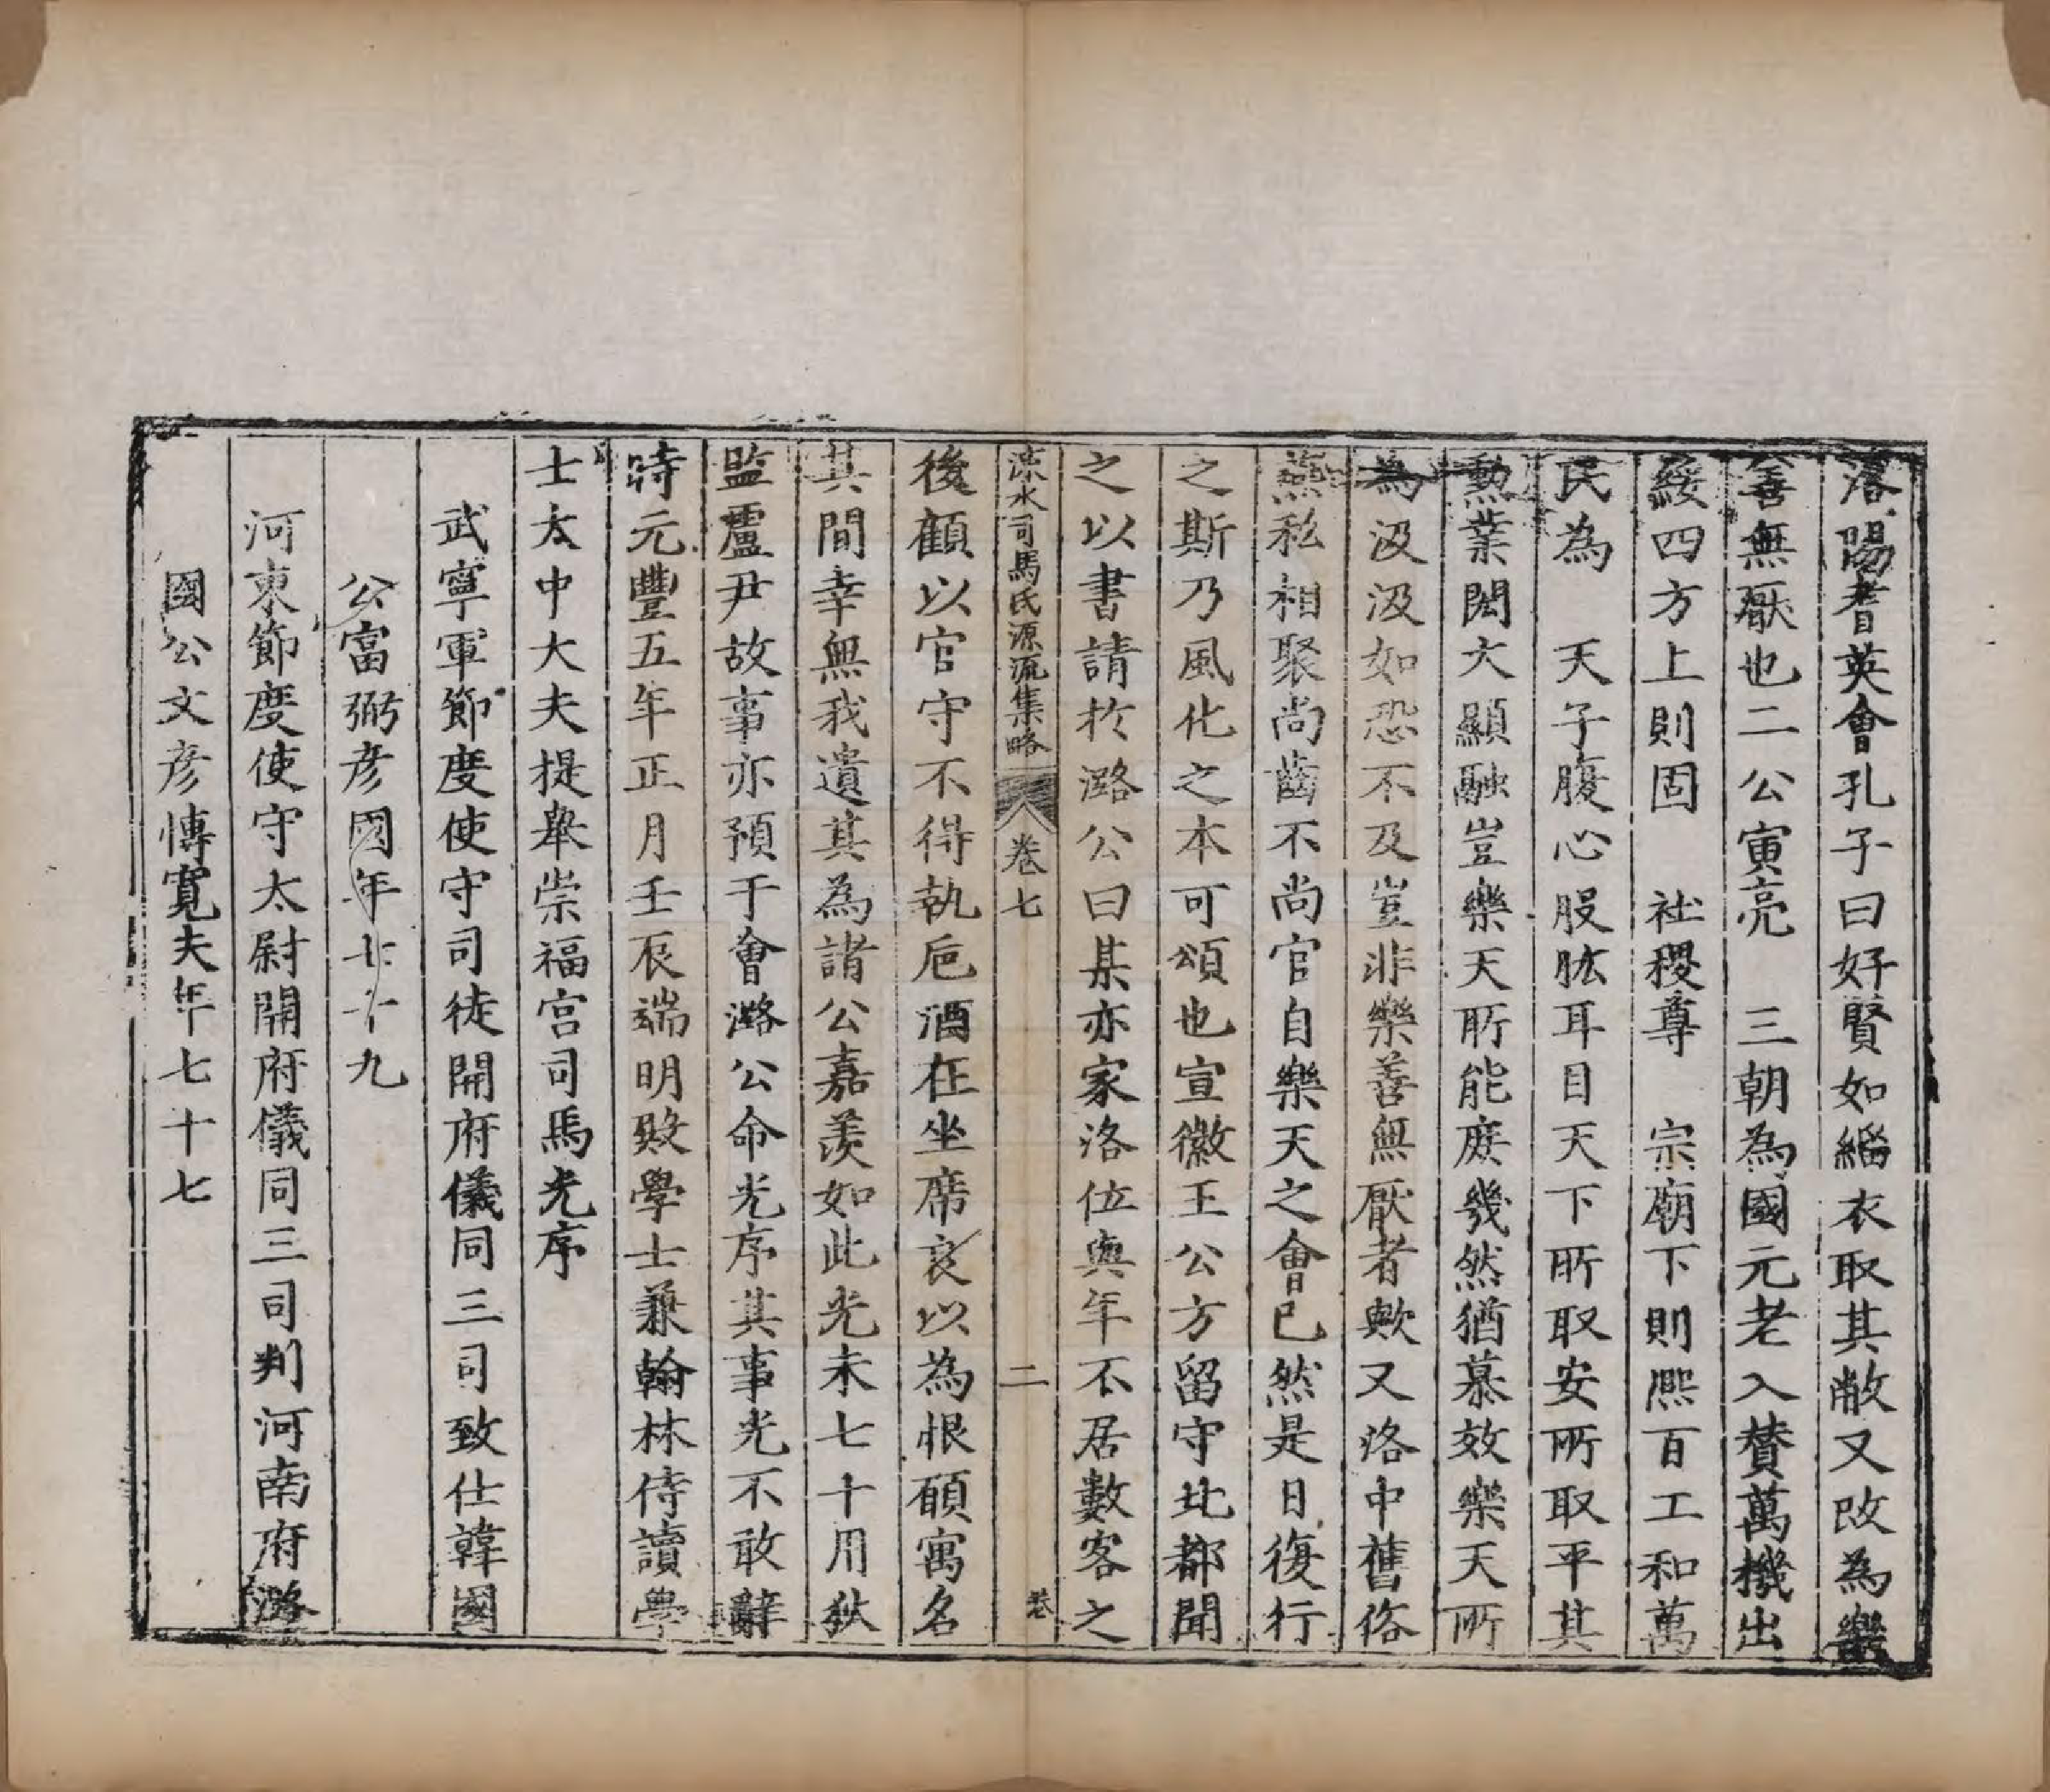 洛陽耆英會孔子曰好賢如緇衣取其敝又改為樂
善無厭也二公寅亮　三朝為國元老入贊萬機出
綏四方上則固　社稷尊　宗廟下則熈百工和萬
民為　天子腹心股肱耳目天下所取安所取平其
勲業閎大顯融豈樂天所能庶幾然猶慕效樂天所
為汲汲如恐不及豈非樂善無厭者歟又洛中舊俗
燕私相聚尚齒不尚官自樂天之會已然是日復行
之斯乃風化之本可頌也宣徽王公方留守北都聞
之以書請於潞公曰某亦家洛位與年不居數客之
涑水司馬氏源流集略　卷七　二　卷
後顧以官守不得執巵酒在坐席良以為恨願寓名
其間幸無我遺其為諸公嘉羨如此光未七十用狄
監盧尹故事亦預于會潞公命光序其事光不敢辭
時元豐五年正月壬辰端明殿學士兼翰林侍讀學
士太中大夫提舉崇福宫司馬光序
武寧軍節度使守司徒開府儀同三司致仕韓國
公富弼彥國年七十九
河東節度使守太尉開府儀同三司判河南府潞
國公文彥慱寬夫年七十七